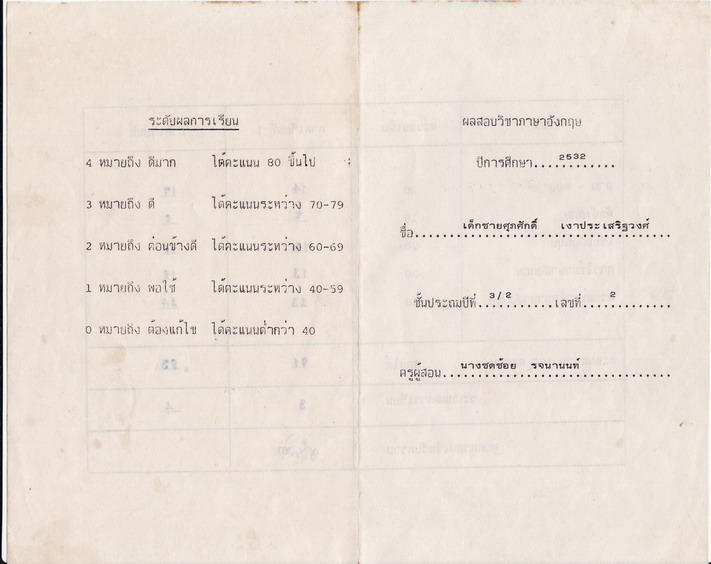 ระดับผลการเรียน
4 หมายถึง ดีมาก ได้คะแนน 80 ขึ้นไป
3 หมายถึง ดี ได้คะแนนระหว่าง 70-79
2 หมายถึง ค่อนข้างดี ได้คะแนนระหว่าง 60-69
1 หมายถึง พอใช้ ได้คะแนนระหว่าง 40-59
0 หมายถึง ต้องแก้ไข ได้คะแนนต่ำกว่า 40
ผลสอบวิชาภาษาอังกฤษ
ปีการศึกษา...2532......
ชื่อ......เด็กชายศุภศักดิ์ เงาประเสริฐวงศ์...
ชั้นประถมปีที่..3/2.......เลขที่....2.......
ครูผู้สอน...นางชดช้อย รจนานนท์..............